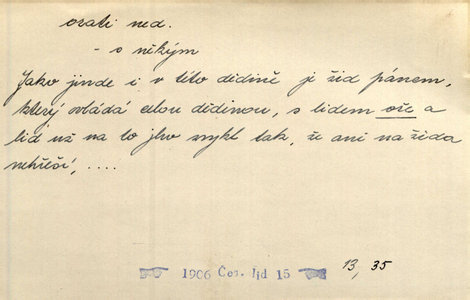 orati ned.
- s někým
Jako jinde i v této dědině je žid pánem,
který ovládá celou dědinou, s lidem oře a
lid už na to jho zvykl tak, že ani na žida
nehřeší, ....
1906 Čes. lid 15
13, 35